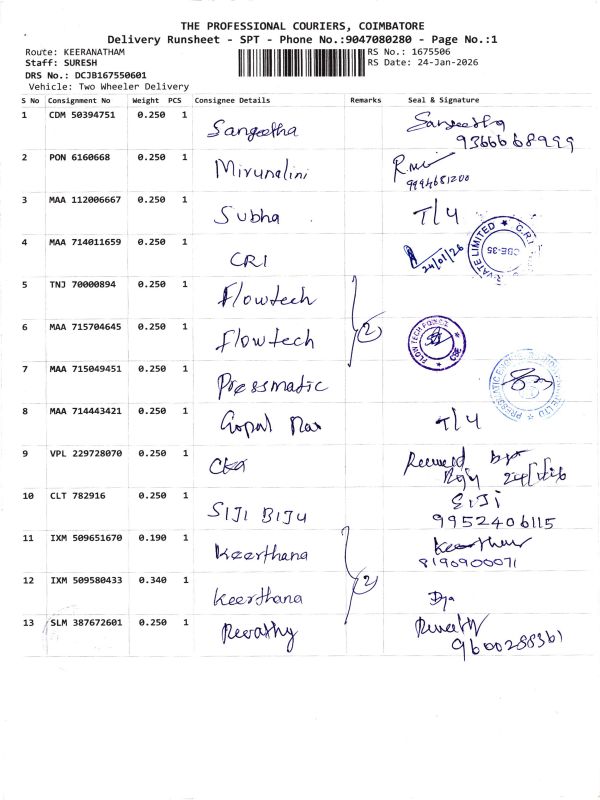 THE PROFESSIONAL COURIERS, COIMBATORE
Delivery Runsheet - SPT - Phone No.:9047080280 - Page No.:1
Route: KEERANATHAM RS No.: 1675506
Staff: SURESH RS Date: 24-Jan-2026
DRS No.: DCJB167550601
Vehicle: Two Wheeler Delivery
S No Consignment No Weight PCS Consignee Details Remarks Seal & Signature
1 CDM 50394751 0.250 1 Sangeetha Sangeetha
9366668999
2 PON 6160668 0.250 1 Mirunalini
9994681200
3 MAA 112006667 0.250 1 Subha T/4
4 MAA 714011659 0.250 1 CRI 24/01/26
VATE LIMITED ★ C.R.I CBE-35
5 TNJ 70000894 0.250 1 Flowtech
6 MAA 715704645 0.250 1 Flowtech 2
FLOW TECH POWER ★ CBE ★
7 MAA 715049451 0.250 1 Pressmatic
8 MAA 714443421 0.250 1 Gopal T/4
9 VPL 229728070 0.250 1 Received
10 CLT 782916 0.250 1 SIJI BIJU SIJI
9952406115
11 IXM 509651670 0.190 1 Keerthana
8190900071
12 IXM 509580433 0.340 1 Keerthana 2
13 SLM 387672601 0.250 1 Revathy
9600288361